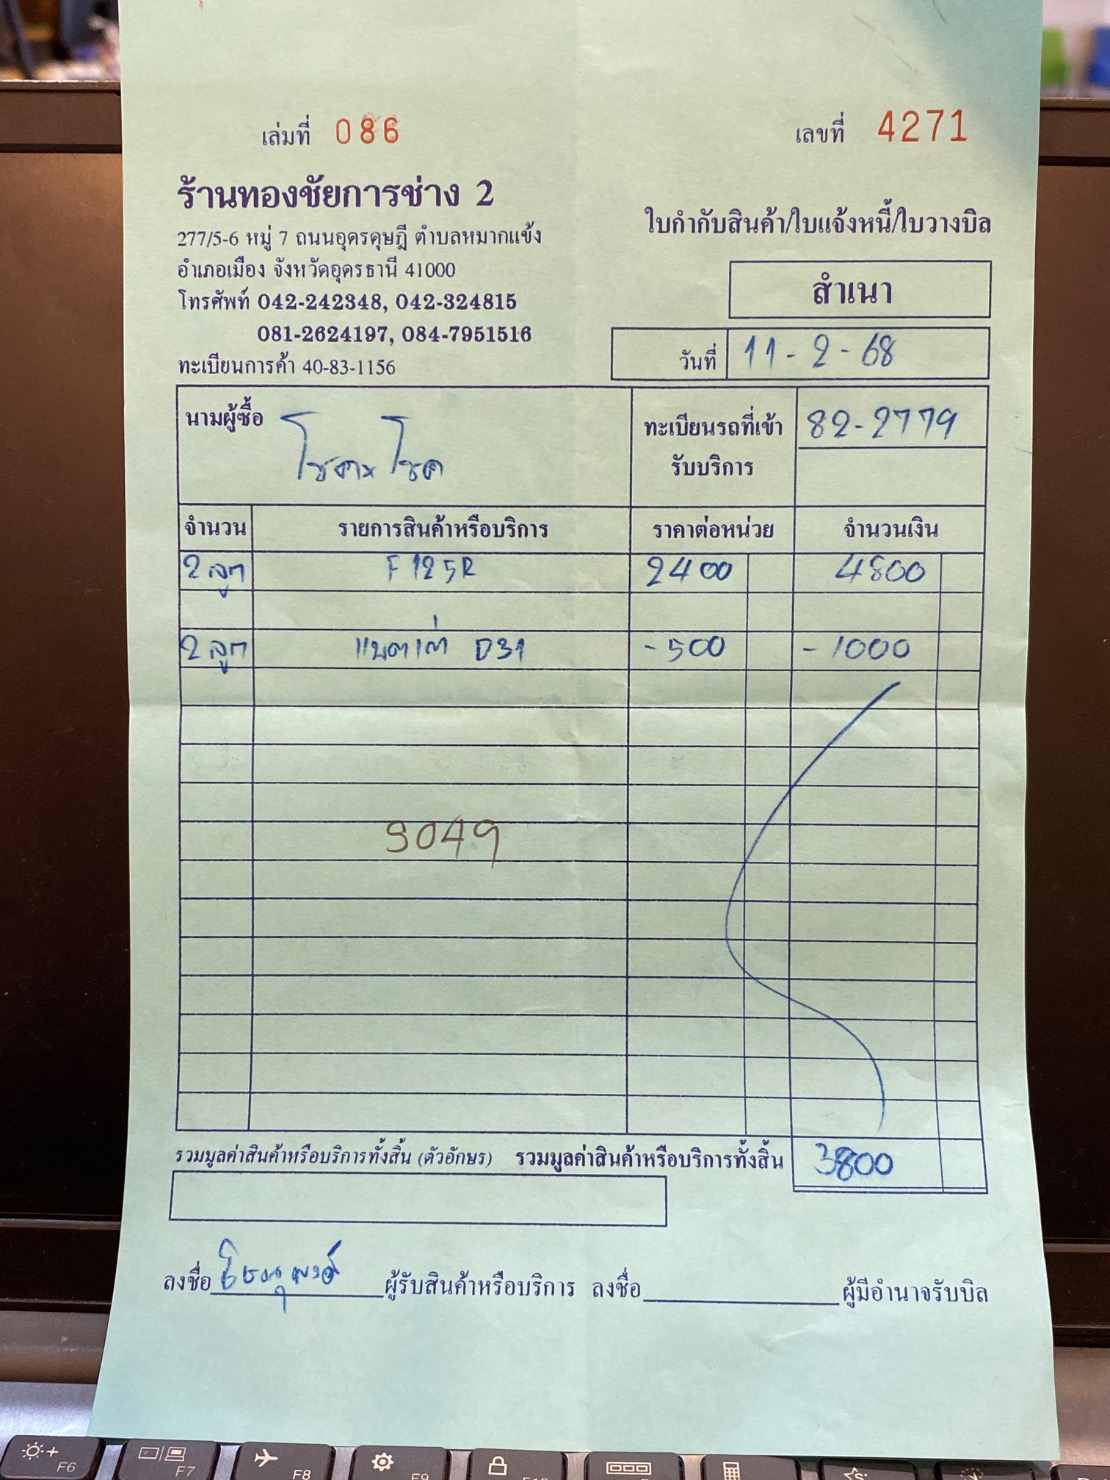 เล่มที่ 086
เลขที่ 4271
ร้านทองชัยการช่าง 2
277/5-6 หมู่ 7 ถนนอุดรดุษฎี ตำบลหมากแข้ง
อำเภอเมือง จังหวัดอุดรธานี 41000
โทรศัพท์ 042-242348, 042-324815
081-2624197, 084-7951516
ทะเบียนการค้า 40-83-1156
ใบกำกับสินค้า/ใบแจ้งหนี้/ใบวางบิล
สำเนา
วันที่ 11-2-68
นามผู้ซื้อ
ทะเบียนรถที่เข้า 82-2779
รับบริการ
จำนวน รายการสินค้าหรือบริการ ราคาต่อหน่วย จำนวนเงิน
2 ลูก F125R 2400 4800
2 ลูก แบตเก่า D31 -500 -1000
9049
รวมมูลค่าสินค้าหรือบริการทั้งสิ้น (ตัวอักษร) รวมมูลค่าสินค้าหรือบริการทั้งสิ้น 3800
ลงชื่อ ผู้รับสินค้าหรือบริการ ลงชื่อ ผู้มีอำนาจรับบิล
F6
F7
F8
F9